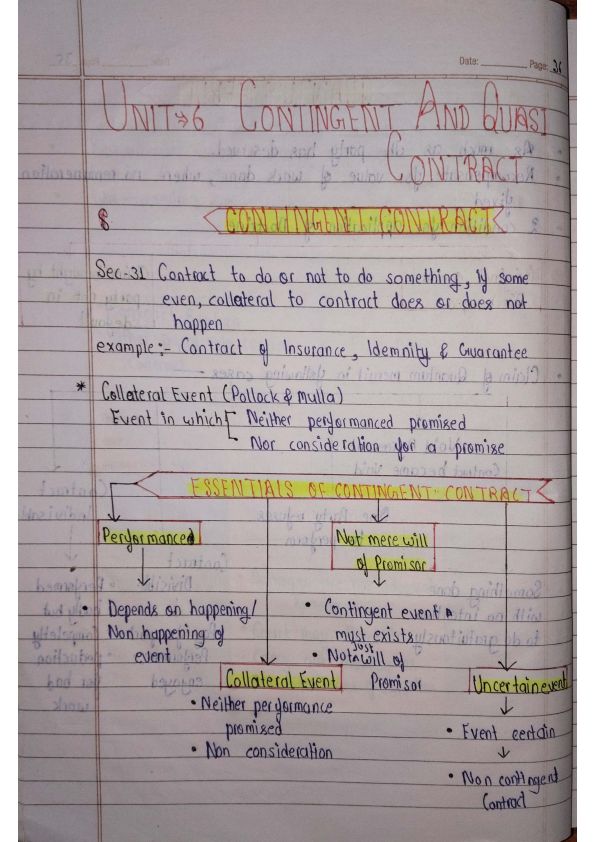 Date: ________ Page: 36
UNIT→6 CONTINGENT AND QUASI
CONTRACT
CONTINGENT CONTRACT
Sec-31 Contract to do or not to do something, if some
even, collateral to contract does or does not
happen
example:- Contract of Insurance, Idemnity & Guarantee
* Collateral Event (Pollock & Mulla)
Event in which [ Neither performanced promised
Nor consideration for a promise
ESSENTIALS OF CONTINGENT CONTRACT
Performanced
• Depends on happening/
Non happening of
event
Collateral Event
• Neither performance
promised
• Non consideration
Not mere will
of Promisor
• Contingent event
must exists
• Not just will of
Promisor
Uncertain event
• Event certain
• Non contingent
Contract